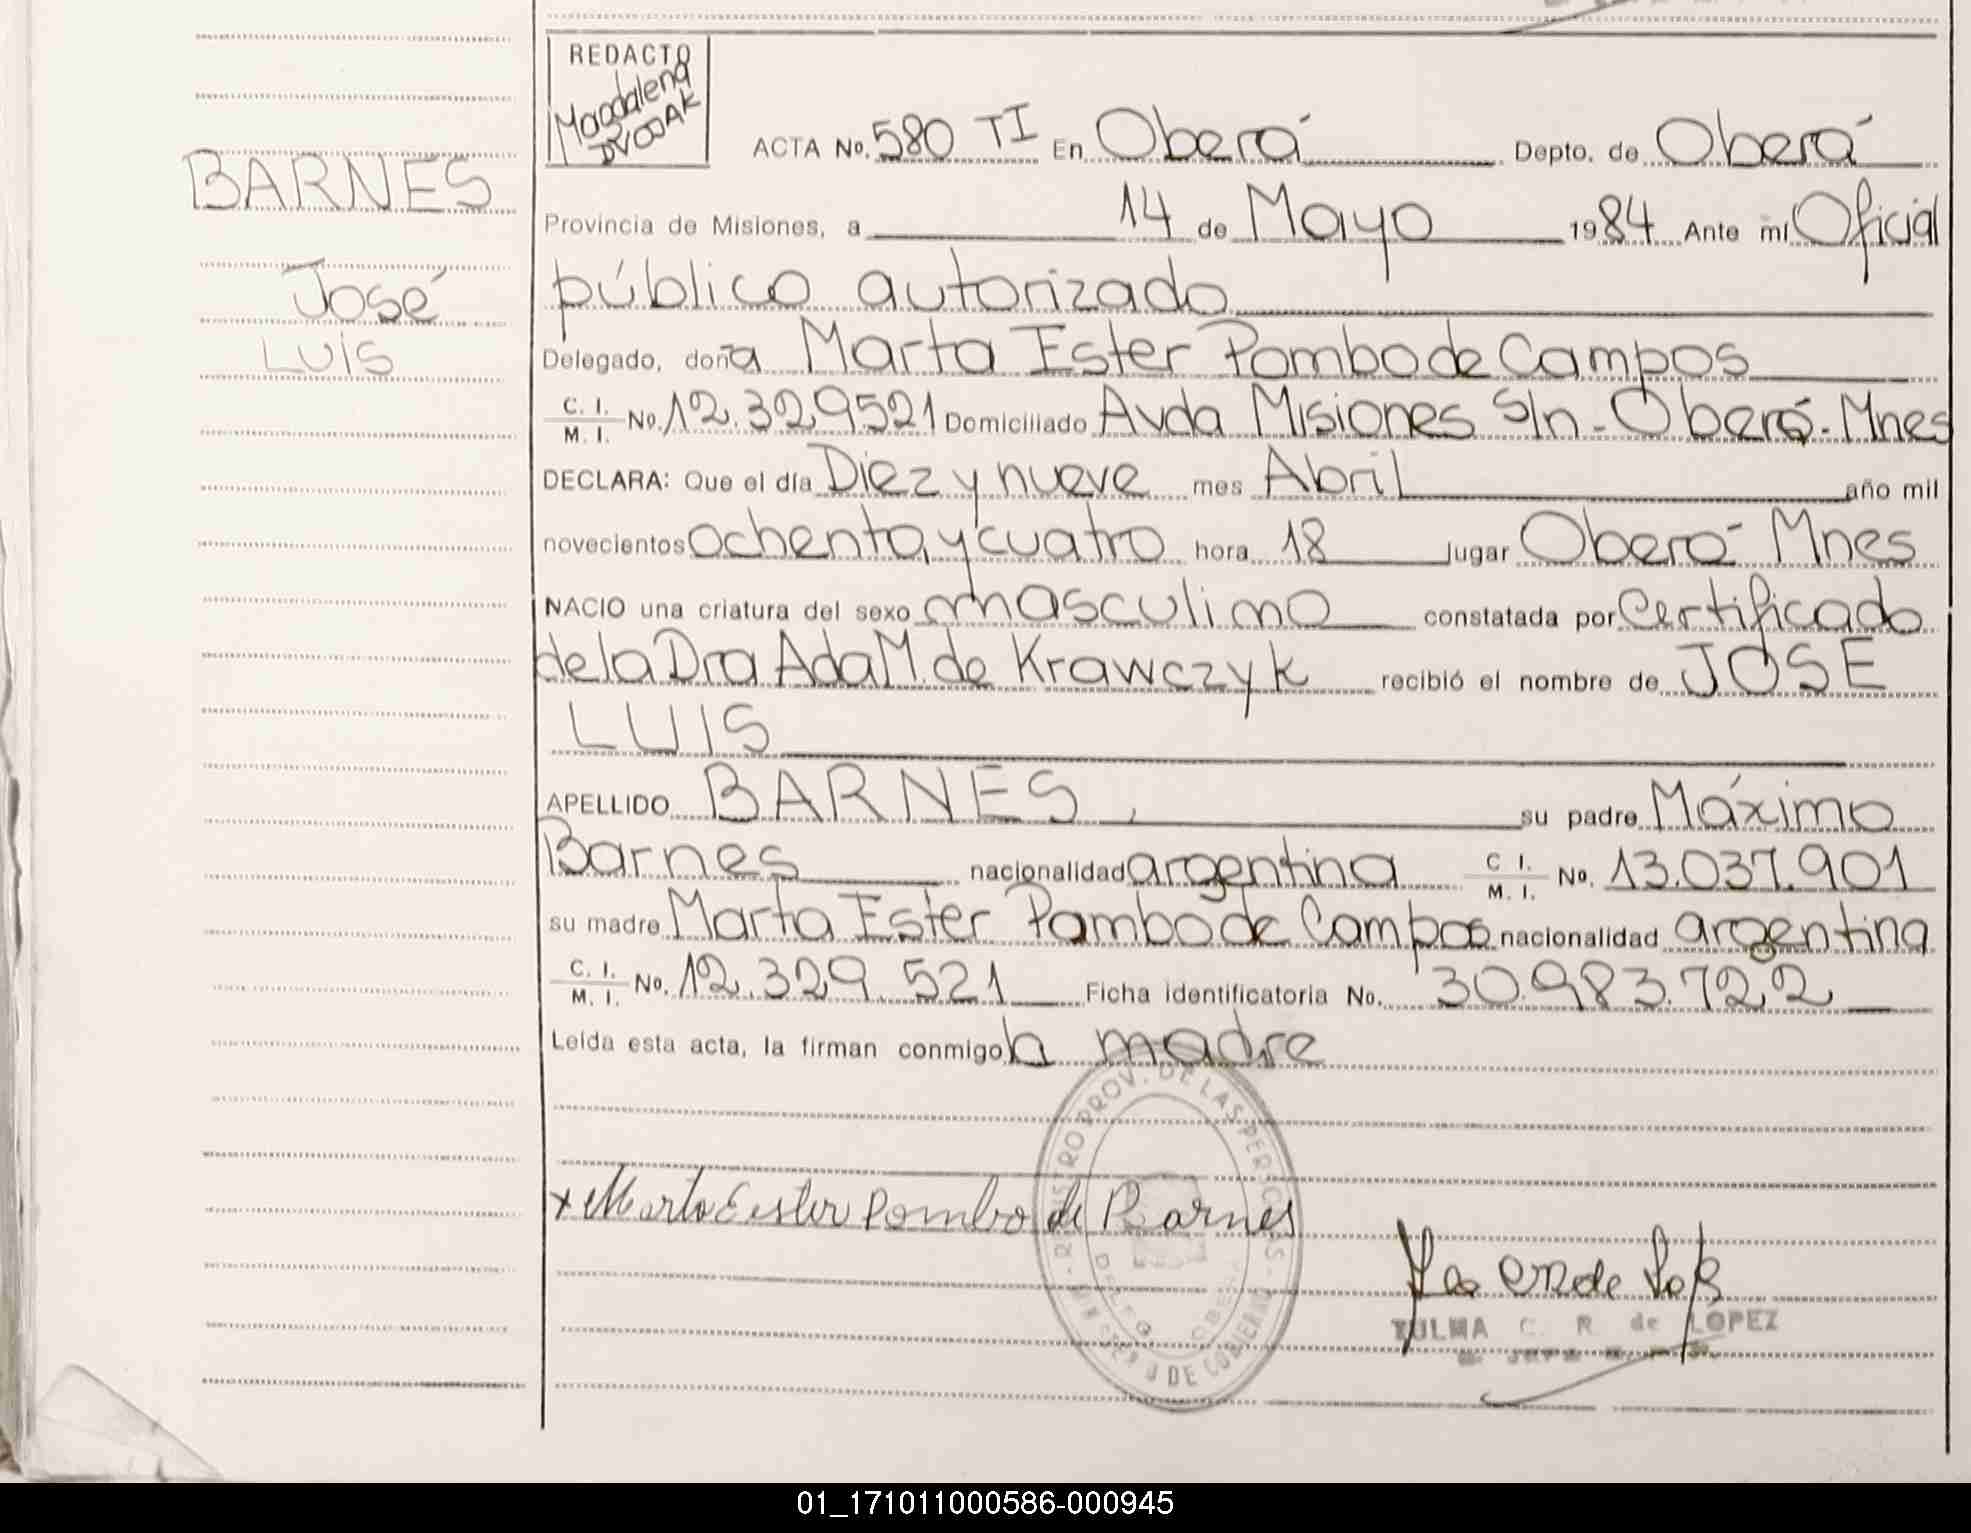 REDACTO
Magdalena
DVOOAK
BARNES
José
LUIS
ACTA No. 580 TI En Oberá Depto. de Oberá
Provincia de Misiones, a 14 de Mayo 1984 Ante mí Oficial
público autorizado
Delegado, doña Marta Ester Pombo de Campos
C. I. M. I. No. 12.329521 Domiciliado Avda Misiones S/n - Oberá - Mnes
DECLARA: Que el día Diez y nueve mes Abril año mil
novecientos ochenta y cuatro hora 18 lugar Oberá Mnes
NACIO una criatura del sexo masculino constatada por Certificado
de la Dra Ada M. de Krawczyk recibió el nombre de JOSE
LUIS
APELLIDO BARNES, su padre Máximo
Barnes nacionalidad argentina C I. M. I. No. 13.037.901
su madre Marta Ester Pombo de Campos nacionalidad argentina
C. I. M. I. No. 12.329.521 Ficha identificatoria No. 30.983.722
Leída esta acta, la firman conmigo la madre
REGISTRO PROV. DE LAS PERSONAS - MINISTERIO DE GOBIERNO
x Marta Ester Pombo de Barnes
C. R. de LOPEZ
01_171011000586-000945